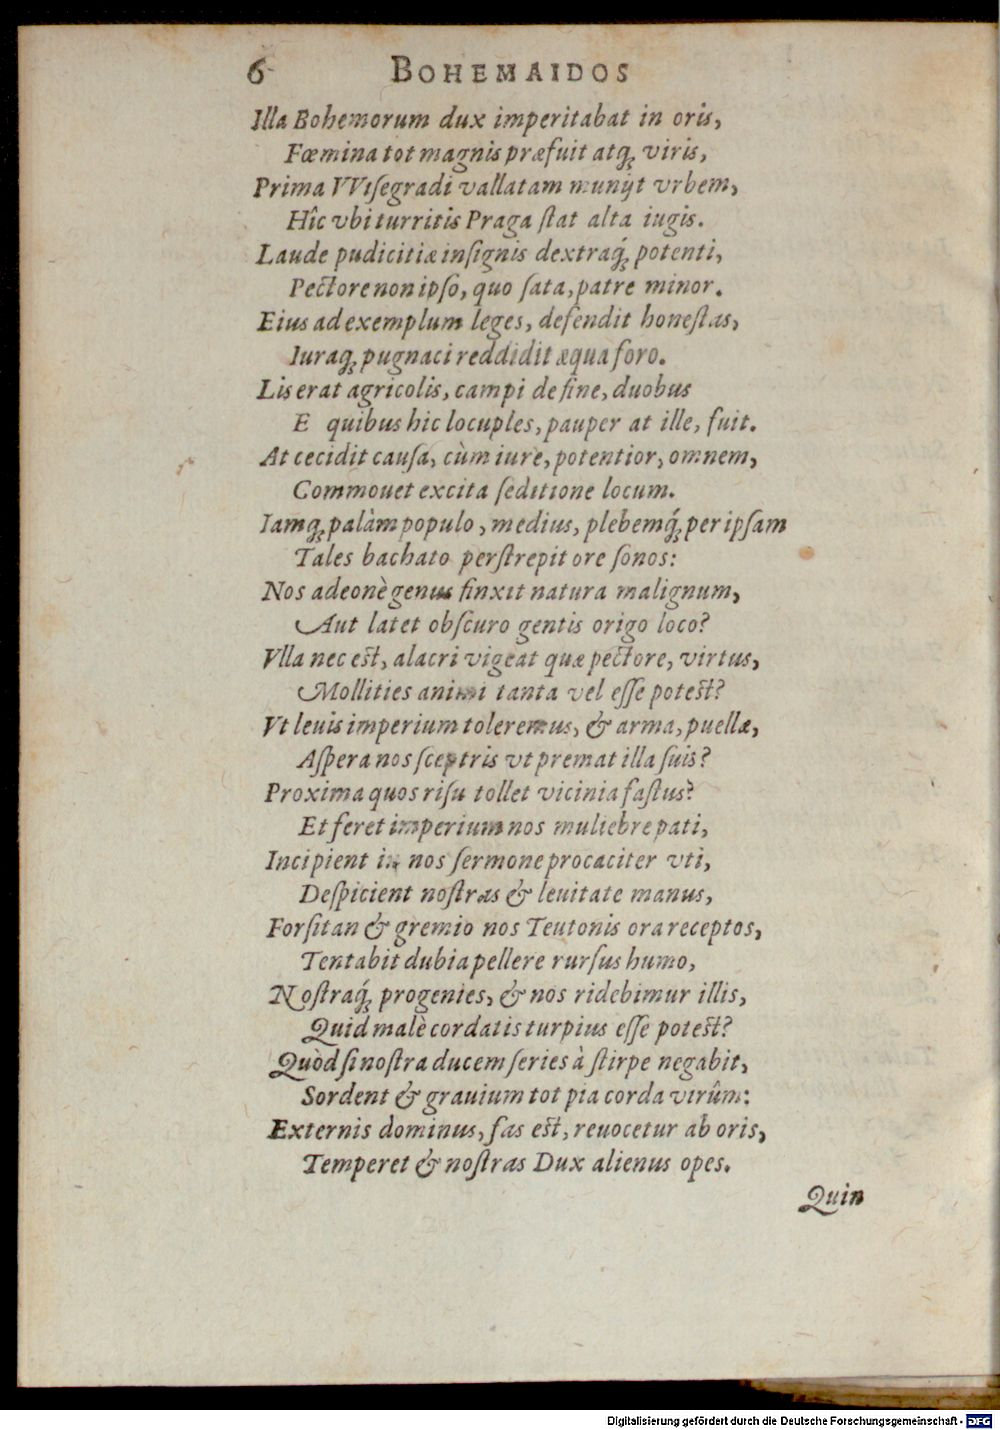 6 BOHEMAIDOS
Illa Bohemorum dux imperitabat in oris,
Fœmina tot magnis præfuit atq; viris,
Prima VViſegradi vallatam munijt vrbem,
Hîc vbi turritis Praga ſtat alta iugis.
Laude pudicitiæ inſignis dextraq́; potenti,
Pectore non ipſo, quo ſata, patre minor.
Eius ad exemplum leges, defendit honeſtas,
Iuraq; pugnaci reddidit æqua foro.
Lis erat agricolis, campi de fine, duobus
E quibus hic locuples, pauper at ille, fuit.
At cecidit cauſa, cùm iure, potentior, omnem,
Commouet excita ſeditione locum.
Iamq; palàm populo, medius, plebemq́; per ipſam
Tales bachato perſtrepit ore ſonos:
Nos adeonè genus finxit natura malignum,
Aut latet obſcuro gentis origo loco?
Vlla nec est, alacri vigeat quæ pectore, virtus,
Mollities animi tanta vel eſſe potest?
Vt leuis imperium toleremus, & arma, puellæ,
Aſpera nos ſceptris vt premat illa ſuis?
Proxima quos riſu tollet vicinia faſtus?
Et feret imperium nos muliebre pati,
Incipient in nos ſermone procaciter vti,
Deſpicient noſtras & leuitate manus,
Forſitan & gremio nos Teutonis ora receptos,
Tentabit dubia pellere rurſus humo,
Noſtraq́; progenies, & nos ridebimur illis,
Quid malè cordatis turpius eſſe potest?
Quòd ſi noſtra ducem ſeries à ſtirpe negabit,
Sordent & grauium tot pia corda virûm:
Externis dominus, fas est, reuocetur ab oris,
Temperet & noſtras Dux alienus opes.
Quin
Digitalisierung gefördert durch die Deutsche Forschungsgemeinschaft - DFG